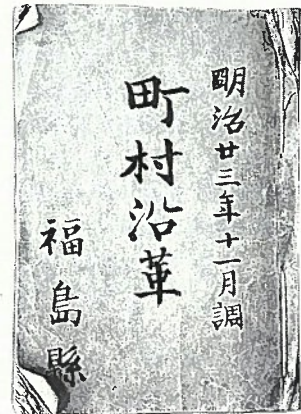 明治廿三年十一月調
町村沿革
福島縣